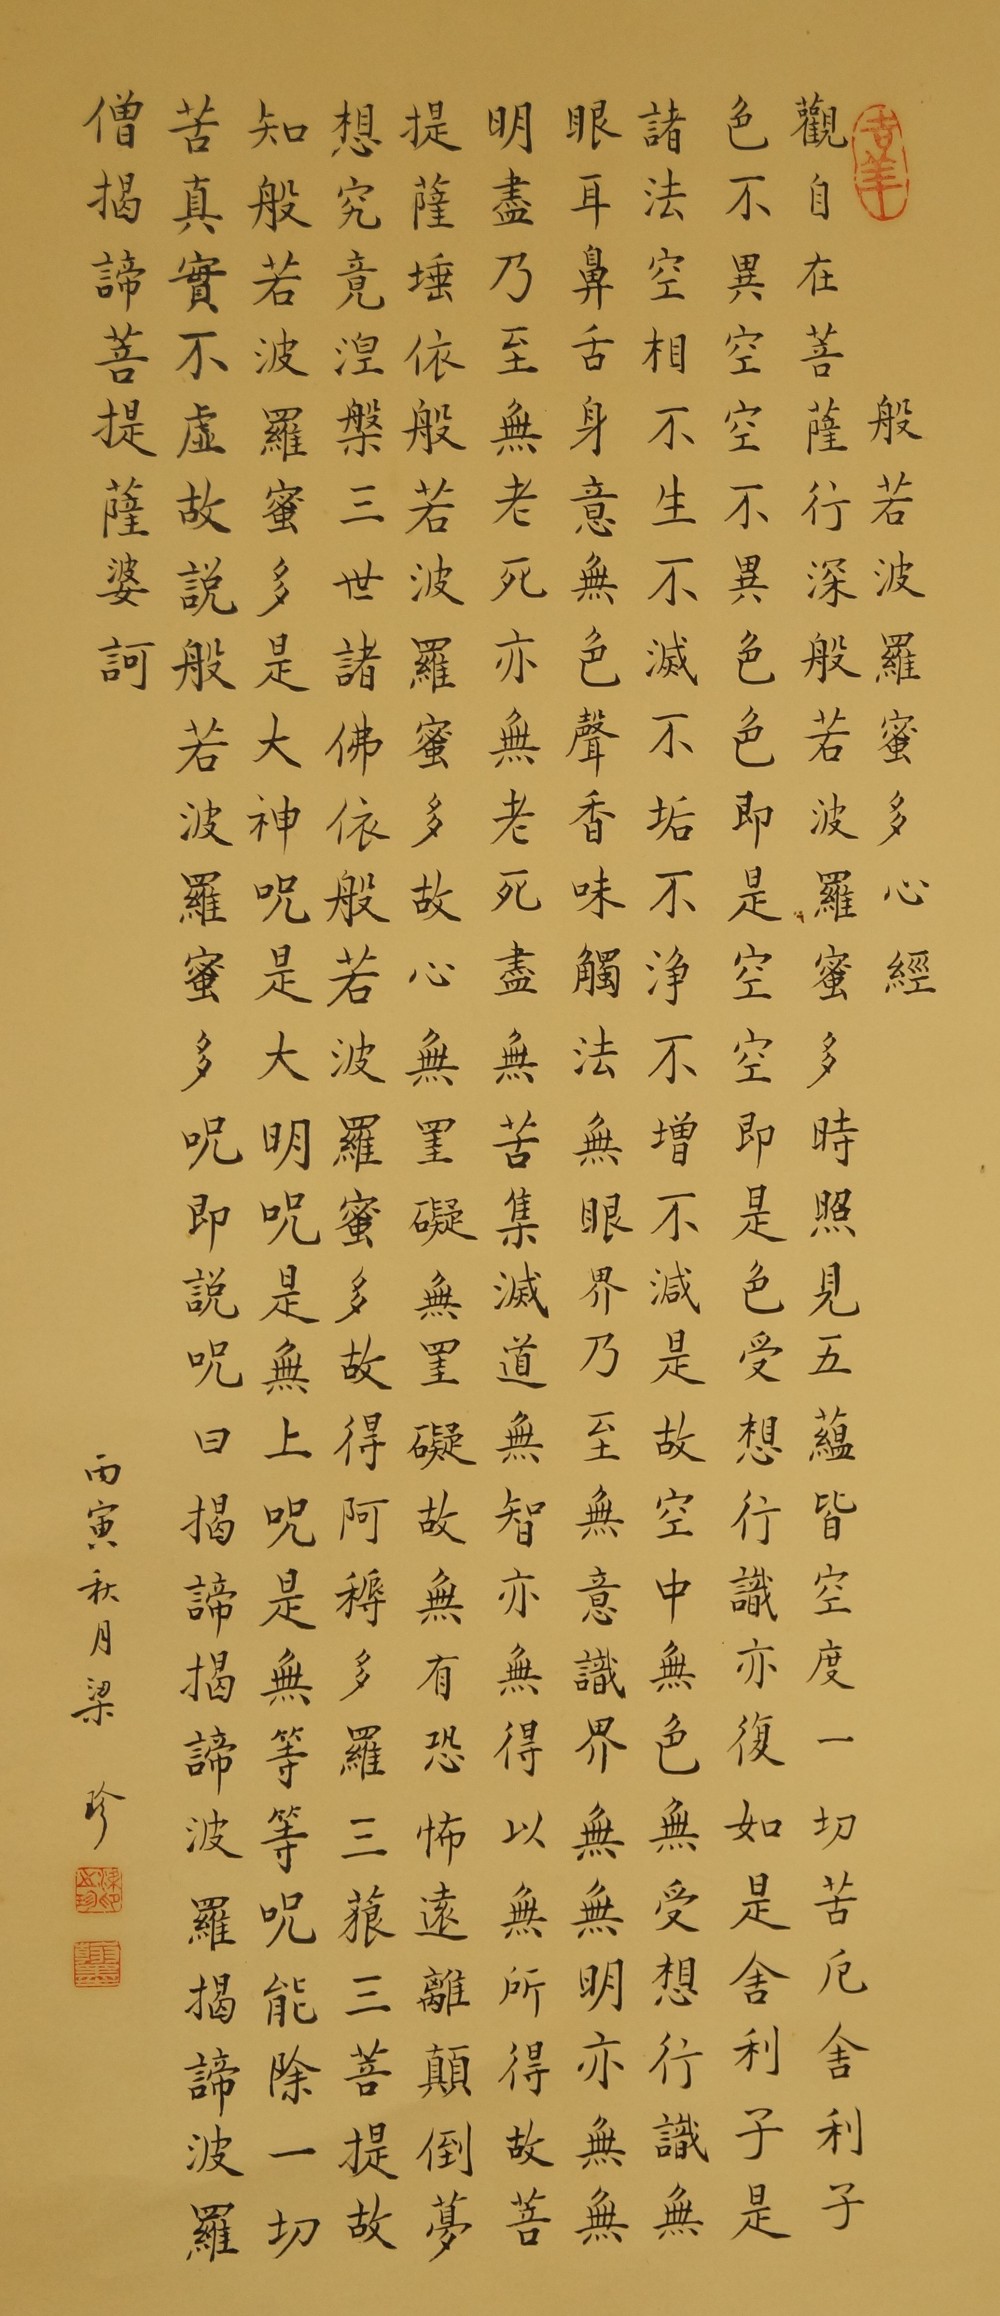 吉羊
般若波羅蜜多心經
觀自在菩薩行深般若波羅蜜多時照見五蘊皆空度一切苦厄舍利子
色不異空空不異色色即是空空即是色受想行識亦復如是舍利子是
諸法空相不生不滅不垢不净不增不減是故空中無色無受想行識無
眼耳鼻舌身意無色聲香味觸法無眼界乃至無意識界無無明亦無無
明盡乃至無老死亦無老死盡無苦集滅道無智亦無得以無所得故菩
提薩埵依般若波羅蜜多故心無罣礙無罣礙故無有恐怖遠離顛倒夢
想究竟涅槃三世諸佛依般若波羅蜜多故得阿耨多羅三藐三菩提故
知般若波羅蜜多是大神呪是大明呪是無上呪是無等等呪能除一切
苦真實不虛故說般若波羅蜜多呪即說呪曰揭諦揭諦波羅揭諦波羅
僧揭諦菩提薩婆訶
丙寅秋月梁 珍